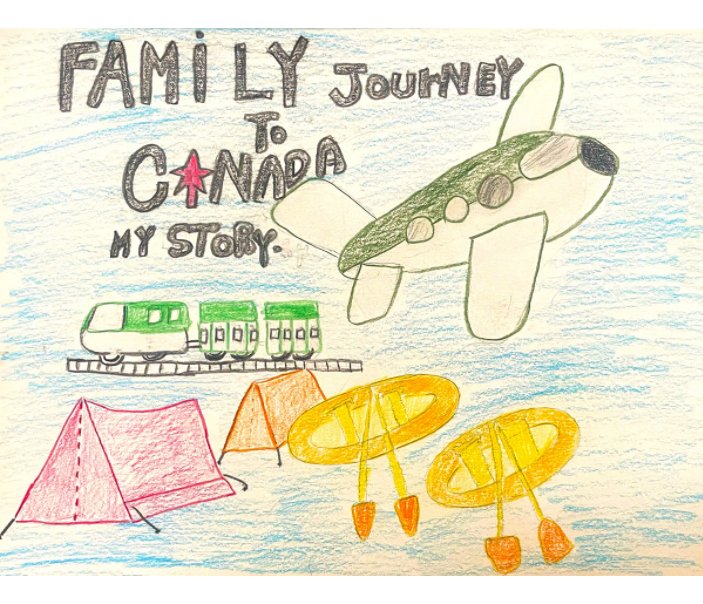 FAMiLY JOURNEY
TO
CANADA
MY STORY.